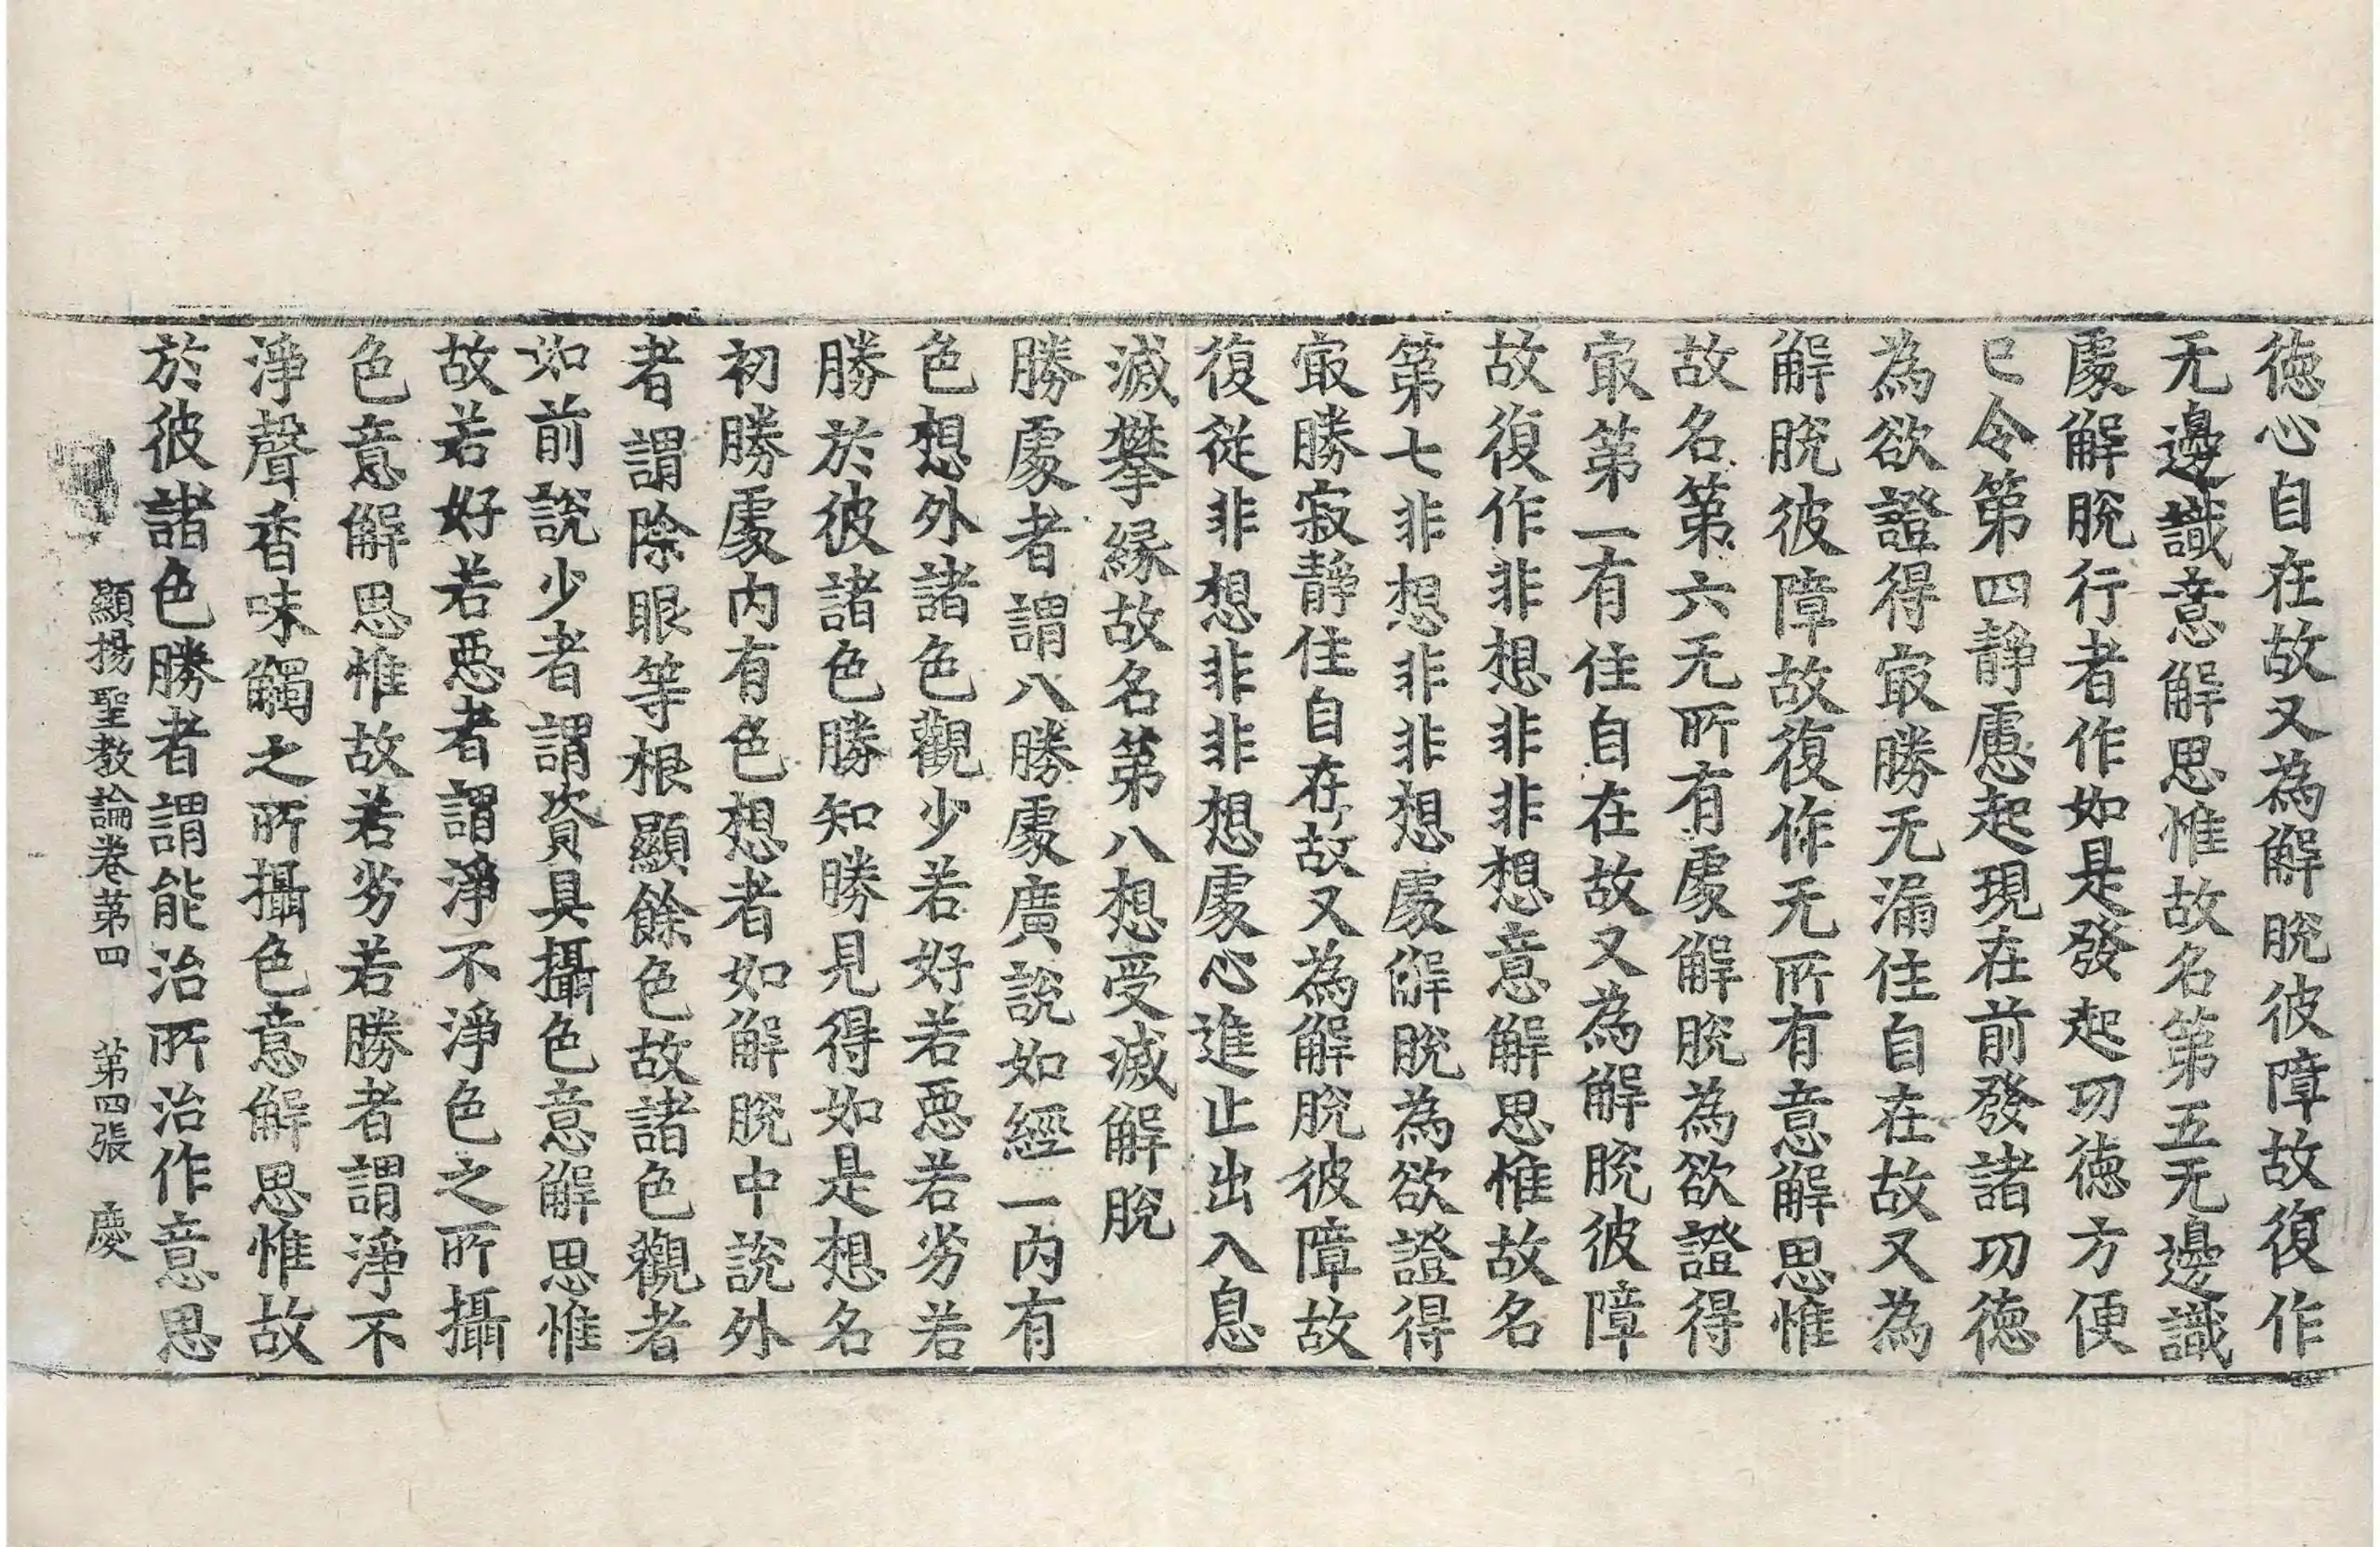 徳心自在故又為解脫彼障故復作
无邊識意解思惟故名第五无邊識
處解脫行者作如是發起功徳方便
已令第四靜慮起現在前發諸功徳
為欲證得㝡勝无漏住自在故又為
解脫彼障故復作无所有意解思惟
故名第六无所有處解脫為欲證得
㝡第一有住自在故又為解脫彼障
故復作非想非非想意解思惟故名
第七非想非非想處解脫為欲證得
㝡勝寂靜住自在故又為解脫彼障故
復從非想非非想處心進止出入息
滅攀緣故名第八想受滅解脫
勝處者謂八勝處廣說如經一內有
色想外諸色觀少若好若惡若劣若
勝於彼諸色勝知勝見得如是想名
初勝處內有色想者如解脫中說外
者謂除眼等根顯餘色故諸色觀者
如前說少者謂資具攝色意解思惟
故若好若惡者謂淨不淨色之所攝
色意解思惟故若劣若勝者謂淨不
淨聲香味觸之所攝色意解思惟故
於彼諸色勝者謂能治所治作意思
顯揚聖教論卷第四 第四張 慶